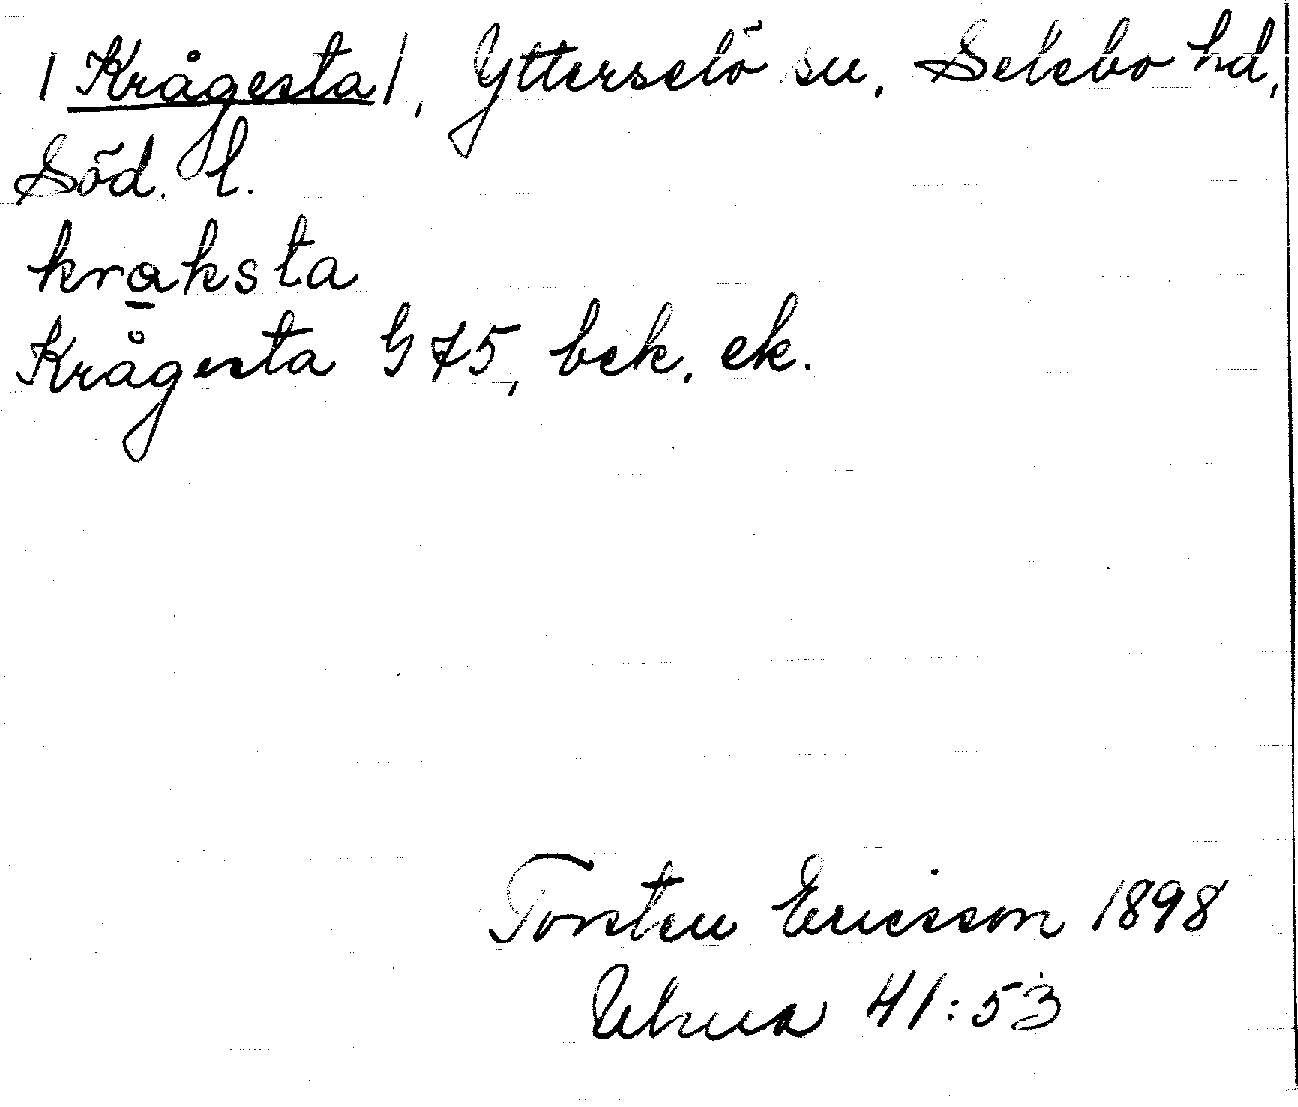 /Krågesta/, Ytterselö sn, Selebo hd,
Söd. l.
kraksta
Krågesta G 75, bek. ek.
Torsten Ericsson 1898
Uhua 41:53